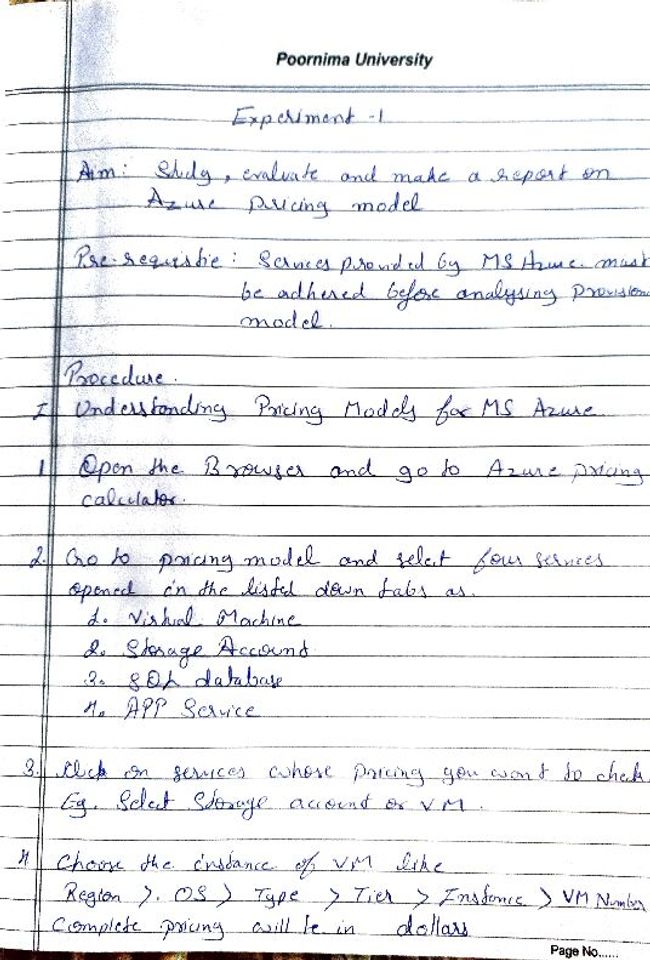 Poornima University
Experiment -1
Aim: Study, evaluate and make a report on
Azure pricing model
Pre-requistie: Services provided by MS Azure must
be adhered before analysing provision
model.
Procedure.
I Understanding Pricing Models for MS Azure
1 Open the Browser and go to Azure pricing
calculator.
2. Go to pricing model and select four services
opened in the listed down tabs as.
1. Virtual Machine
2. Storage Account
3. SQL database
4. APP Service
3. Click on services whose pricing you want to check
Eg. Select Storage account or VM.
4 Choose the instance of VM like
Region >. OS > Type > Tier > Instance > VM Number
Complete pricing will be in dollars
Page No......